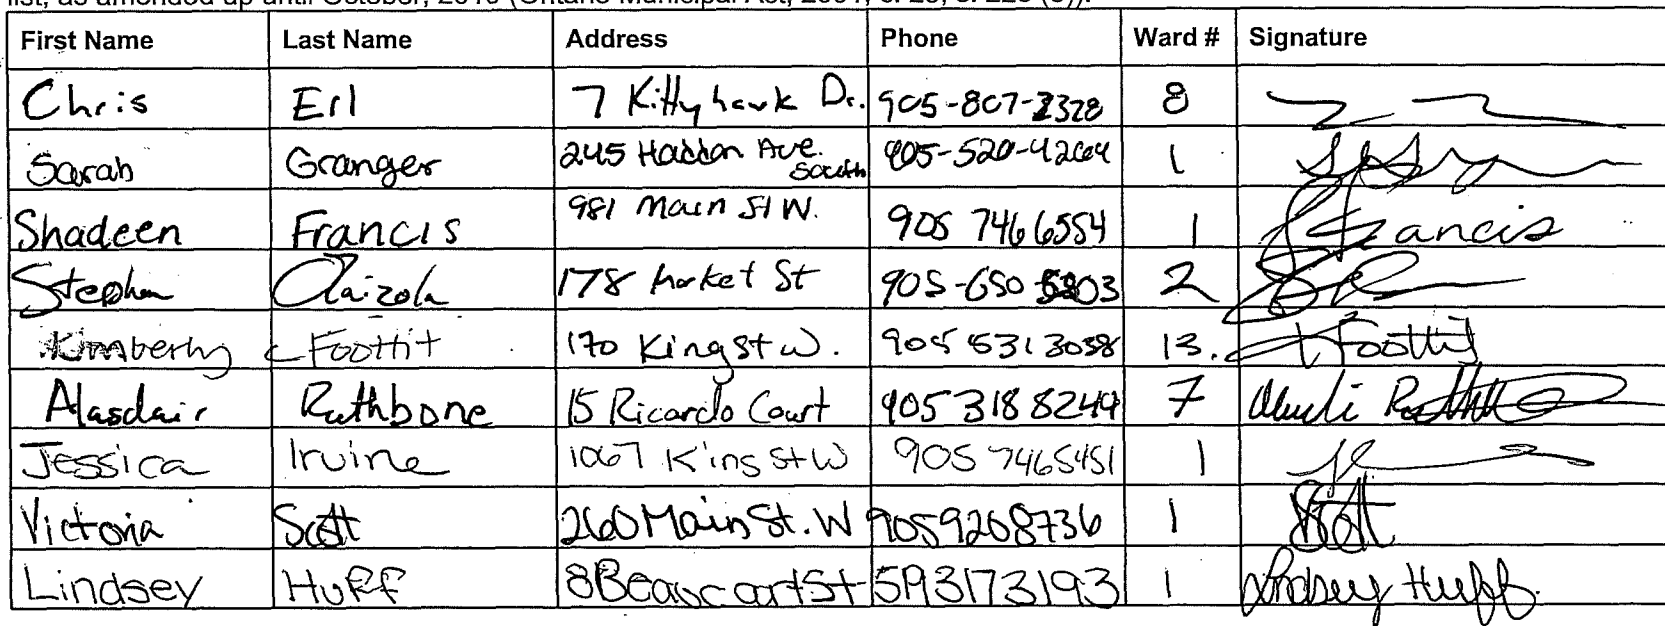 list, as amended up until October, 2010 (Ontario Municipal Act, 2001, c. 25, s. 220 (3)).
First Name Last Name Address Phone Ward # Signature
Chris Erl 7 Kittyhawk Dr. 905-807-2328 8
Sarah Granger 245 Haddon Ave. South 905-520-4264 1
Shadeen Francis 981 Main St W. 905 746 6554 1 Francis
Stephen 178 Market St 905-650-5303 2
Kimberly Foottit 170 King st w. 905 531 3038 13. K Foottit
Alasdair Rathbone 15 Ricardo Court 905 318 8244 7
Jessica Irvine 1067 King st W 905 7465451 1
Victoria Scott 260 Main St. W 9059208736 1 Scott
Lindsey Huff 8 Beaucourt St 5193173193 1 Lindsey Huff